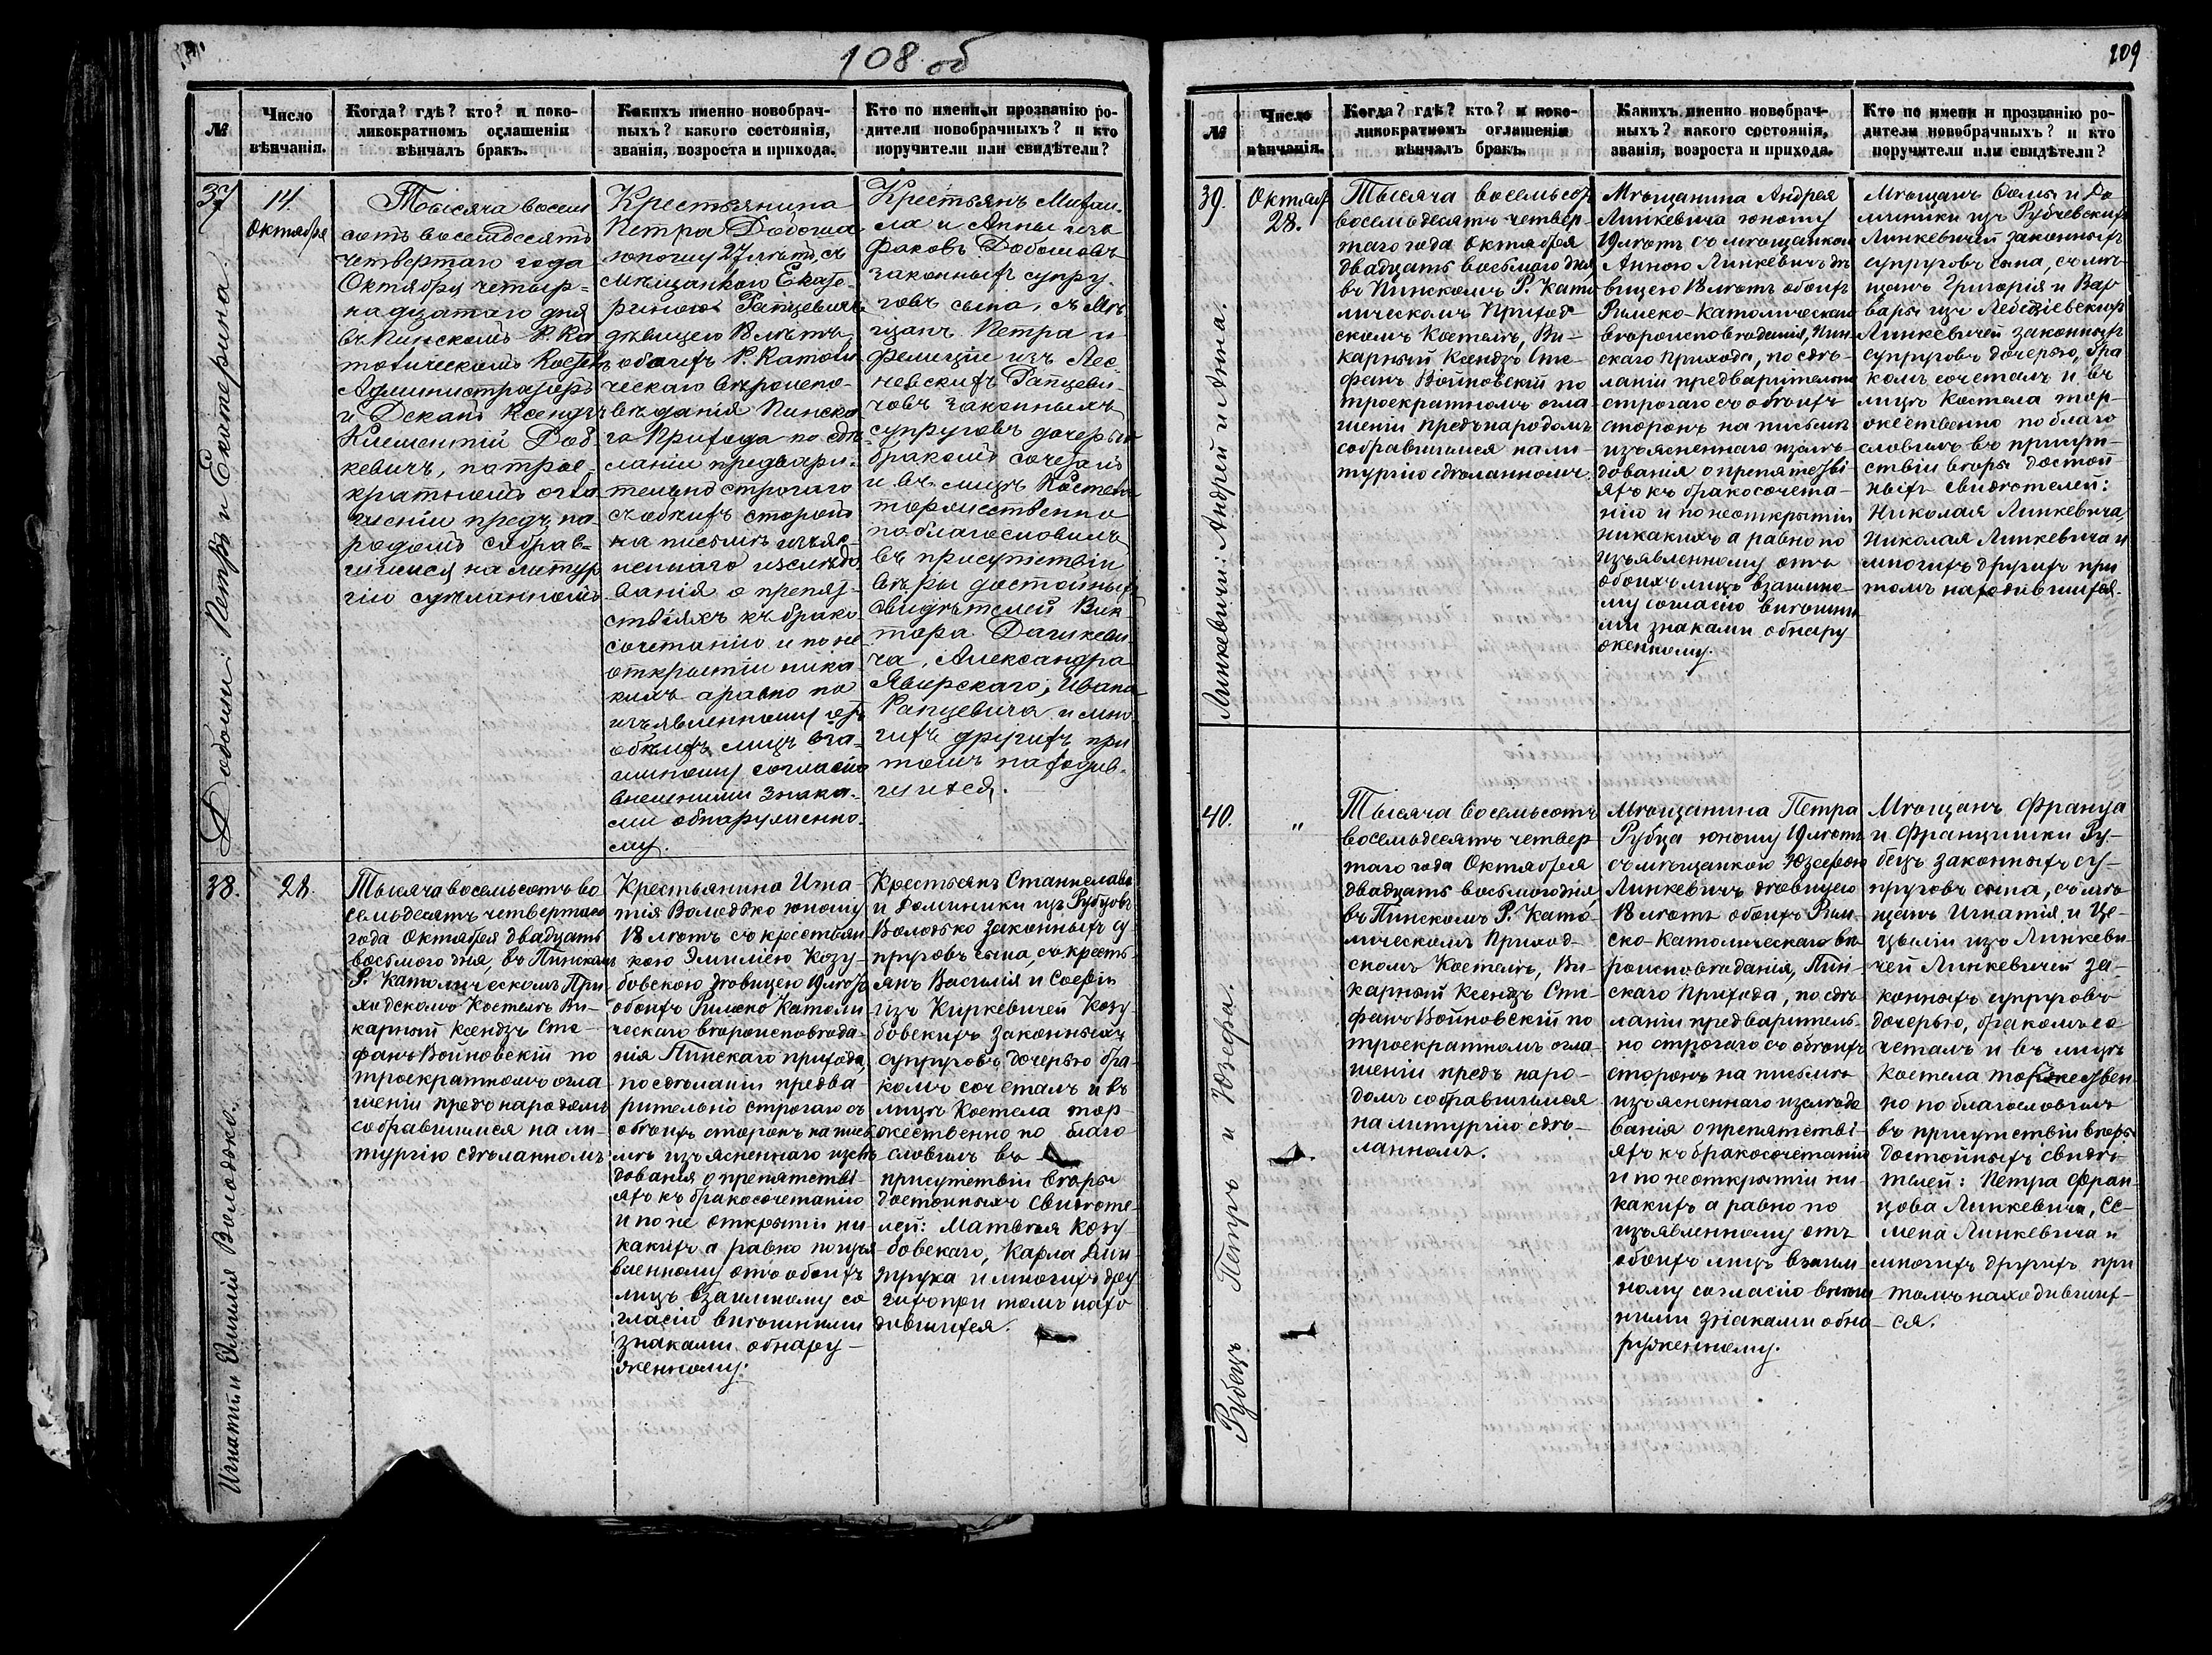 108 об
№
Число
вѣнчанія.
Когда? гдѣ? кто? и поко-
ликократномъ оглашеніи
вѣнчалъ бракъ.
Какихъ именно новобрач-
ныхъ? какого состоянія,
званія, возроста и прихода.
Кто по имени и прозванію ро-
дители новобрачныхъ? и кто
поручители или свидѣтели?
37
Добоши: Петръ и Екатерина.
14.
Октября
Тысяча восем
сотъ восемдесятъ
четвертаго года
Октября четыр-
надцатаго дня
въ Пинскомъ Р. Ка
толическомъ Костелѣ
Администраторъ
и Деканъ Ксендзъ
Климентій
кевичъ, по трое-
кратномъ огла
шеніи предъ на-
родомъ собрав-
шимся на литур
гію сдѣланномъ
Крестьянина
Петра Добоша
юношу 27 лѣтъ, съ
мѣщанкою Екате-
риною Рапцевичъ
дѣвицею 18 лѣтъ
обоихъ Р. Католи
ческаго вѣроиспо-
вѣданія Пинска
го Прихода по сдѣ
ланіи предвари-
тельно строгаго
съ обоихъ сторонъ
на письмѣ изъяс-
неннаго изслѣдо
ванія о препят-
ствіяхъ къ брако
сочетанію и по не
открытіи ника-
кихъ а равно по
изъявленному отъ
обоихъ лицъ вза-
имному согласію
внешними знака-
ми обнаруженно-
му.
Крестьянъ Михаи-
ла и Анны изъ
Факовъ Добошовъ
законныхъ супру-
говъ сына, съ Мѣ
щанъ Петра и
Фелиціи изъ Лес-
невскихъ Рапцеви-
човъ законныхъ
супруговъ дочерью
бракомъ сочеталъ
и въ лицѣ Костела
торжественно
поблагословилъ
въ присутствіи
вѣры достойныхъ
свидѣтелей Вик-
тора Дашкеви-
ча, Александра
Явирскаго, Ивана
Рапцевича и мно-
гихъ другихъ при
томъ находив-
шихся.
38.
Игнатій и Эмилія Володько.
28.
Тысяча восемьсотъ во
семьдесятъ четвертаго
года Октября двадцать
восьмого дня, въ Пинскомъ
Р. Католическомъ При
ходскомъ Костелѣ Ви-
карный Ксендзъ Сте-
фанъ Войновскій по
троекратномъ огла
шеніи предъ народомъ
собравшимся на ли-
тургію сдѣланномъ
Крестьянина Игна-
тія Володько юношу
18 лѣтъ съ крестьян
кою Эмиліею Козу-
бовскою дѣвицею 19 лѣтъ
обоихъ Римско Католи
ческаго вѣроисповѣда-
нія Пинскаго прихода,
по сдѣланіи предва-
рительно строгаго съ
обоихъ сторонъ на пись
мѣ изъясненнаго изслѣ
дованія о препятстві-
яхъ къ бракосочетанію
и по не открытіи ни-
какихъ а равно по изъя-
вленному отъ обоихъ
лицъ взаимному со
гласію внѣшними
знаками обнару-
женному.
Крестьянъ Станислава
и Доминики изъ Рубцовъ
Володько законныхъ су-
пруговъ сына, съ кресть-
янъ Василія и Софіи
изъ Киркевичей Козу-
бовскихъ законныхъ
супруговъ дочерью бра-
комъ сочеталъ и въ
лицѣ Костела тор-
жественно по благо-
словилъ въ
присутствіи вѣры
достойныхъ свидѣте-
лей: Матвѣя Козу-
бовскаго, Карла
и многихъ дру
гихъ при томъ нахо
дившихся.
109
№
Число
вѣнчанія.
Когда? гдѣ? кто? и поко-
ликократномъ оглашеніи
вѣнчалъ бракъ.
Какихъ именно новобрач-
ныхъ? какого состоянія,
званія, возроста и прихода.
Кто по имени и прозванію ро-
дители новобрачныхъ? и кто
поручители или свидѣтели?
39.
Линкевичи: Андрей и Анна.
Октября
28.
Тысяча восемьсотъ
восемьдесятъ четвер-
таго года Октября
двадцать восьмого дня,
въ Пинскомъ Р. Като
лическомъ Приход-
скомъ Костелѣ, Ви-
карный Ксендзъ Сте-
фанъ Войновскій по
троекратномъ огла-
шеніи предъ народомъ
собравшимся на ли-
тургію сдѣланномъ.
Мѣщанина Андрея
Линкевича юношу
19 лѣтъ съ мѣщанкою
Анною Линкевичъ дѣ
вицею 18 лѣтъ обоихъ
Римско-Католическаго
вѣроисповѣданія, Пин-
скаго прихода, по сдѣ-
ланіи предварительно
строгаго съ обоихъ
сторонъ на письмѣ
изъясненнаго изслѣ-
дованія о препятстві-
яхъ къ бракосочета-
нію и по неоткрытіи
никакихъ а равно по
изъявленному отъ
обоихъ лицъ взаимно-
му согласію внѣшни
ми знаками обнару
женному.
Мѣщанъ Ѳомы и До
миники изъ Рубчевскихъ
Линкевичей законныхъ
супруговъ сына, съ мѣ-
щанъ Григорія и Вар
вары изъ Лебедзіевскихъ
Линкевичей законныхъ
супруговъ дочерью, бра
комъ сочеталъ и въ
лицѣ Костела тор-
жественно по благо
словилъ въ присут-
ствіи вѣры достой
ныхъ свидѣтелей:
Николая Линкевича,
Николая Линкевича и
многихъ другихъ при
томъ находившихся.
40.
Рубецъ Петръ и Юзефа.
"
Тысяча восемьсотъ
восемьдесятъ четвер
таго года Октября
двадцать восьмого дня,
въ Пинскомъ Р. Като-
лическомъ Приход-
скомъ Костелѣ, Ви-
карный Ксендзъ Сте-
фанъ Войновскій по
троекратномъ огла-
шеніи предъ наро-
домъ собравшимся
на литургію сдѣ-
ланномъ.
Мѣщанина Петра
Рубца юношу 19 лѣтъ
съ мѣщанкою Юзефою
Линкевичъ дѣвицею
18 лѣтъ обоихъ Рим-
ско-Католическаго вѣ-
роисповѣданія, Пин-
скаго прихода, по сдѣ
ланіи предваритель-
но строгаго съ обоихъ
сторонъ на письмѣ
изъясненнаго изслѣдо
ванія о препятстві-
яхъ къ бракосочетанію
и по неоткрытіи ни-
какихъ а равно по
изъявленному отъ
обоихъ лицъ взаим
ному согласію внѣш-
ними знаками обна-
руженному.
Мѣщанъ Франца
и Францишки Ру-
бецъ законныхъ су-
пруговъ сына, съ мѣ-
щанъ Игнатія и Це-
циліи изъ Линкеви-
чей Линкевичей за-
конныхъ супруговъ
дочерью, бракомъ со
четалъ и въ лицѣ
Костела торжествен-
но по благословилъ
въ присутствіи вѣры
достойныхъ свидѣ-
телей: Петра Фран-
цова Линкевича, Се-
мена Линкевича и
многихъ другихъ при
томъ находивших-
ся.